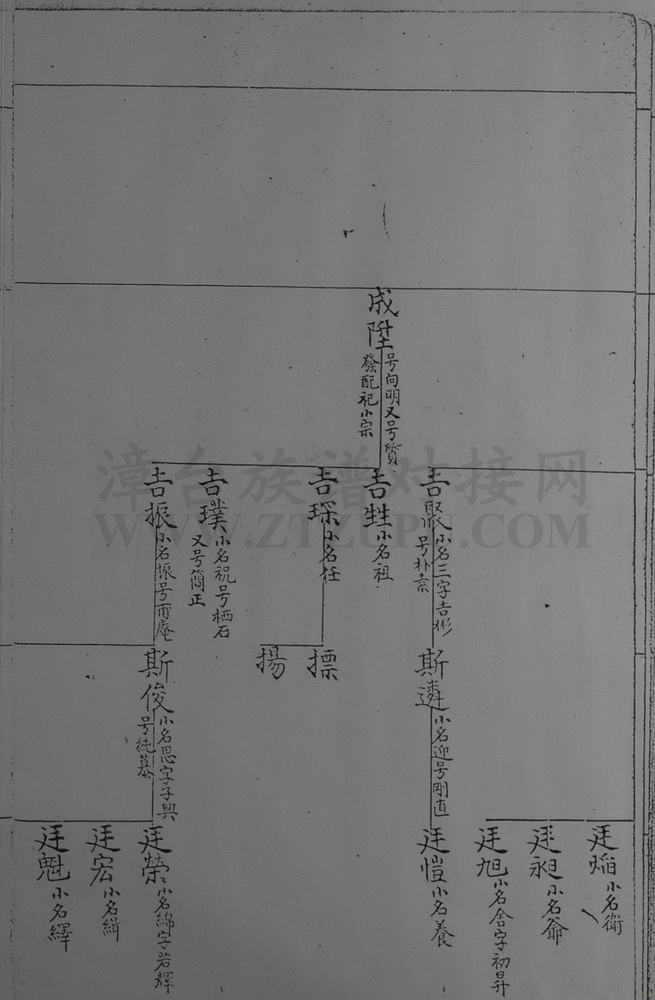 成陞
号向明又号贊
發配祀小宗
吉聚
小名三字吉彬
号朴
吉甡
小名祖
吉琛
小名任
吉璞
小名祝号栖石
又号簡正
吉振
小名振号甫庵
斯遴
小名迎号剛直
標
揚
斯俊
小名思字子興
号純慕
廷焰
小名衛
廷昶
小名爺
廷旭
小名舍字初昇
廷愷
小名養
廷榮
小名綿字若輝
廷宏
小名緝
廷魁
小名繹
漳台族谱对接网
WWW.ZTZUPU.NET